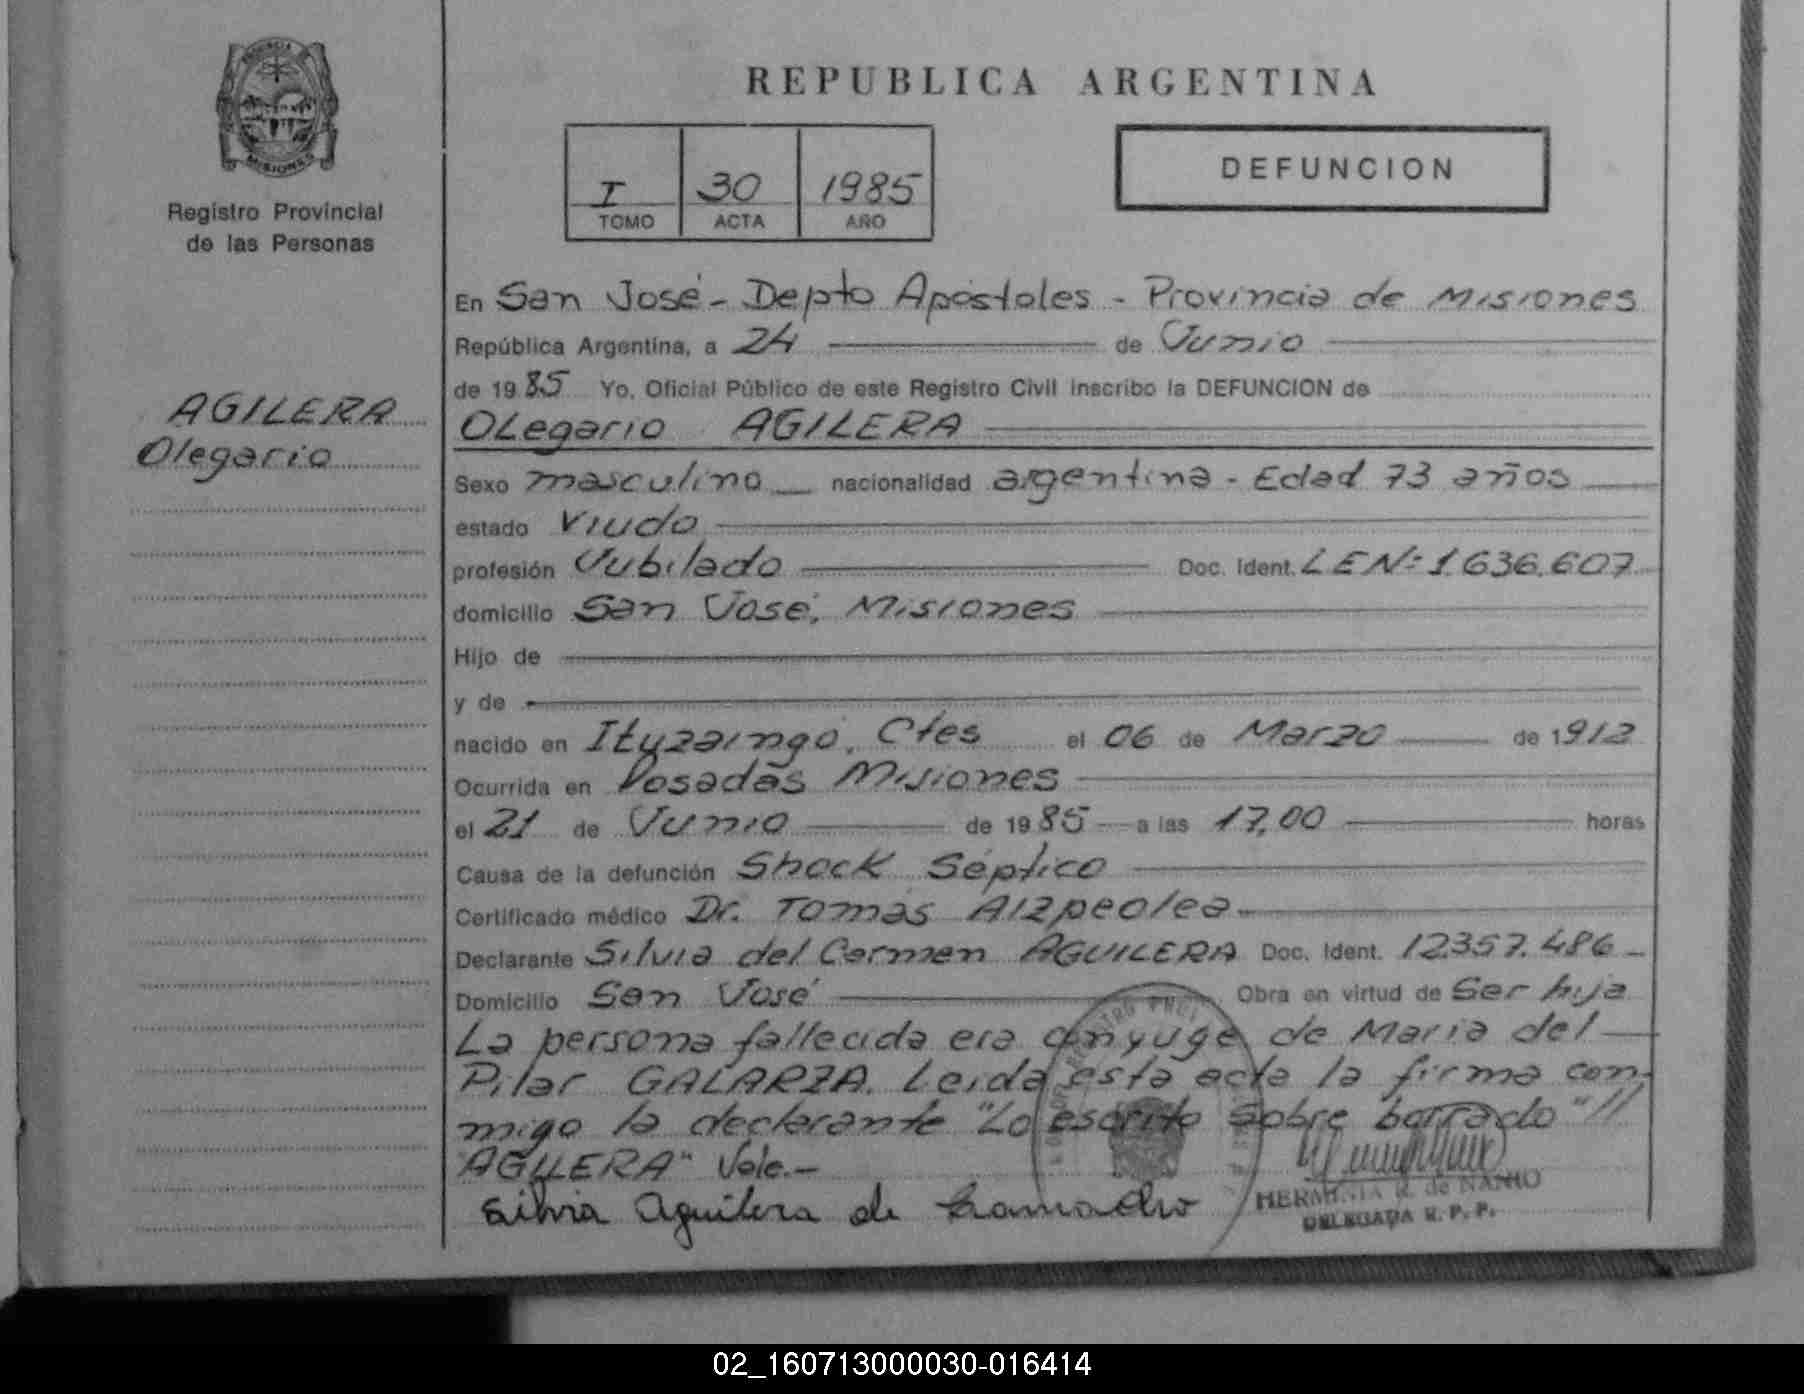 PROVINCIA
MISIONES
Registro Provincial
de las Personas
AGILERA
Olegario
REPUBLICA ARGENTINA
I 30 1985
TOMO ACTA AÑO
DEFUNCION
En San José - Depto Apóstoles - Provincia de Misiones
República Argentina, a 24 de Junio
de 1985 Yo, Oficial Público de este Registro Civil inscribo la DEFUNCION de
OLegario AGILERA
Sexo masculino nacionalidad argentina - Edad 73 años
estado Viudo
profesión Jubilado Doc. Ident. LEN: 1636.607
domicilio San José, Misiones
Hijo de
y de
nacido en Ituzaingó, Ctes el 06 de Marzo de 1912
Ocurrida en Posadas Misiones
el 21 de Junio de 1985 a las 17,00 horas
Causa de la defunción Shock Séptico
Certificado médico Dr. Tomás Aizpeolea
Declarante Silvia del Carmen AGUILERA Doc. Ident. 12.357.486
Domicilio San José Obra en virtud de Ser hija
La persona fallecida era conyuge de Maria del
Pilar GALARZA. Leida esta acta la firma con-
migo la declarante "Lo escrito sobre borrado"//
"AGILERA" Vale.-
Silvia Aguilera de Camacho
HERMINIA R. de NANIO
DELEGADA R. P. P.
02_160713000030-016414